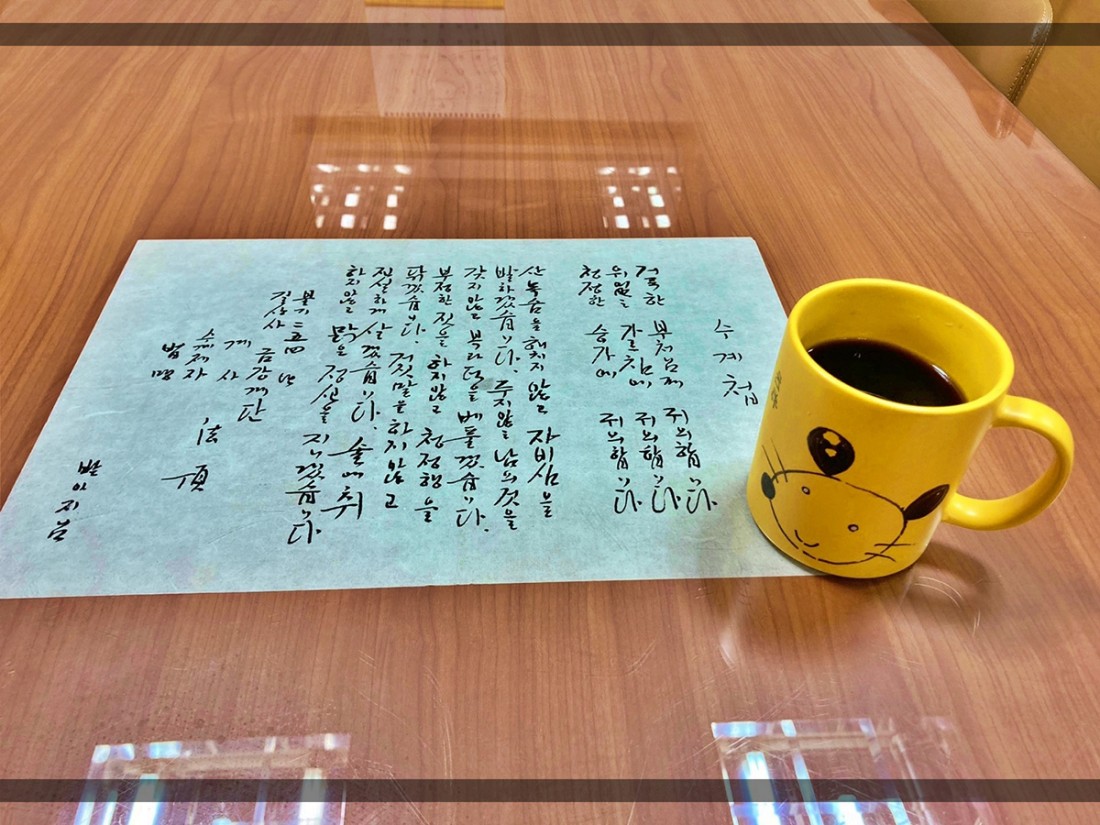 수계첩
거룩한 부처님께 귀의합니다
위없는 가르침에 귀의합니다
청정한 승가에 귀의합니다
산 목숨을 해치지 않고 자비심을
발하겠습니다. 주지 않는 남의 것을
갖지 않고 복과 덕을 베풀겠습니다.
부정한 짓을 하지 않고 청정행을
닦겠습니다. 거짓말을 하지 않고
진실하게 살겠습니다. 술에 취
하지 않고 맑은 정신을 지니겠습니다
불기 년
길상사 금강계단
계사 法頂
수계제자
법명